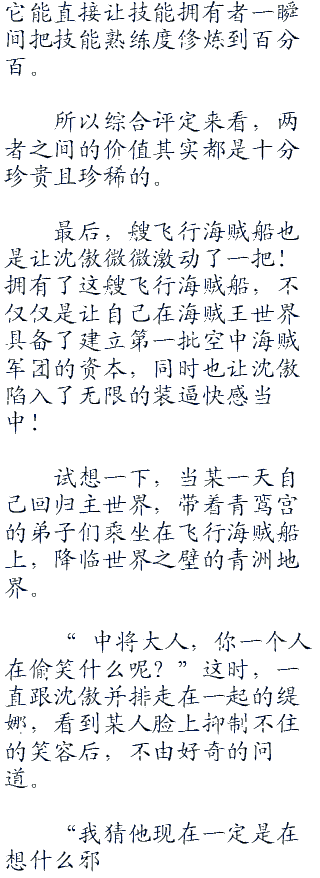 它能直接让技能拥有者一瞬
间把技能熟练度修炼到百分
百。
所以综合评定来看，两
者之间的价值其实都是十分
珍贵且珍稀的。
最后，艘飞行海贼船也
是让沈傲微微激动了一把！
拥有了这艘飞行海贼船，不
仅仅是让自己在海贼王世界
具备了建立第一批空中海贼
军团的资本，同时也让沈傲
陷入了无限的装逼快感当
中！
试想一下，当某一天自
己回归主世界，带着青鸾宫
的弟子们乘坐在飞行海贼船
上，降临世界之壁的青洲地
界。
“中将大人，你一个人
在偷笑什么呢？”这时，一
直跟沈傲并排走在一起的缇
娜，看到某人脸上抑制不住
的笑容后，不由好奇的问
道。
“我猜他现在一定是在
想什么邪